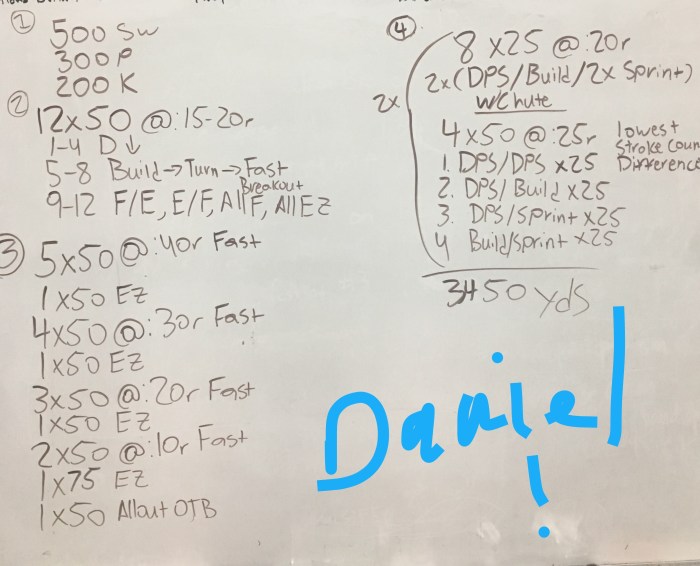 ①
500 Sw
300 P
200 K
②
12x50 @:15-20r
1-4 D↓
5-8 Build→Turn→Fast
Breakout
9-12 F/E, E/F, All F, All EZ
③
5x50@:40r Fast
1x50 EZ
4x50@:30r Fast
1x50 EZ
3x50@:20r Fast
1x50 EZ
2x50@:10r Fast
1x75 EZ
1x50 Allout OTB
④
8 x25 @:20r
2x(DPS/Build/2x Sprint)
2x
w/Chute
4x50@:25r lowest
Stroke Coun
1. DPS/DPS x25 Difference
2. DPS/Build x25
3. DPS/Sprint x25
4 Build/Sprint x25
3450 yds
Daniel
!